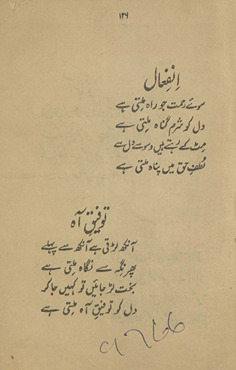 ۱۳۹
اِنفعال
سوئے رحمت جو راہ مِلتی ہے
دل کو شرمِ گناہ مِلتی ہے
مِٹ کے رہتے ہیں وسوسے دل سے
لُطفِ حق میں پناہ ملتی ہے
توفیقِ آہ
آنکھ لڑتی ہے آنکھ سے پہلے
پھر نِگہ سے نگاہ مِلتی ہے
بخت لڑ جائیں تو کہیں جا کر
دل کو توفیقِ آہ ملتی ہے